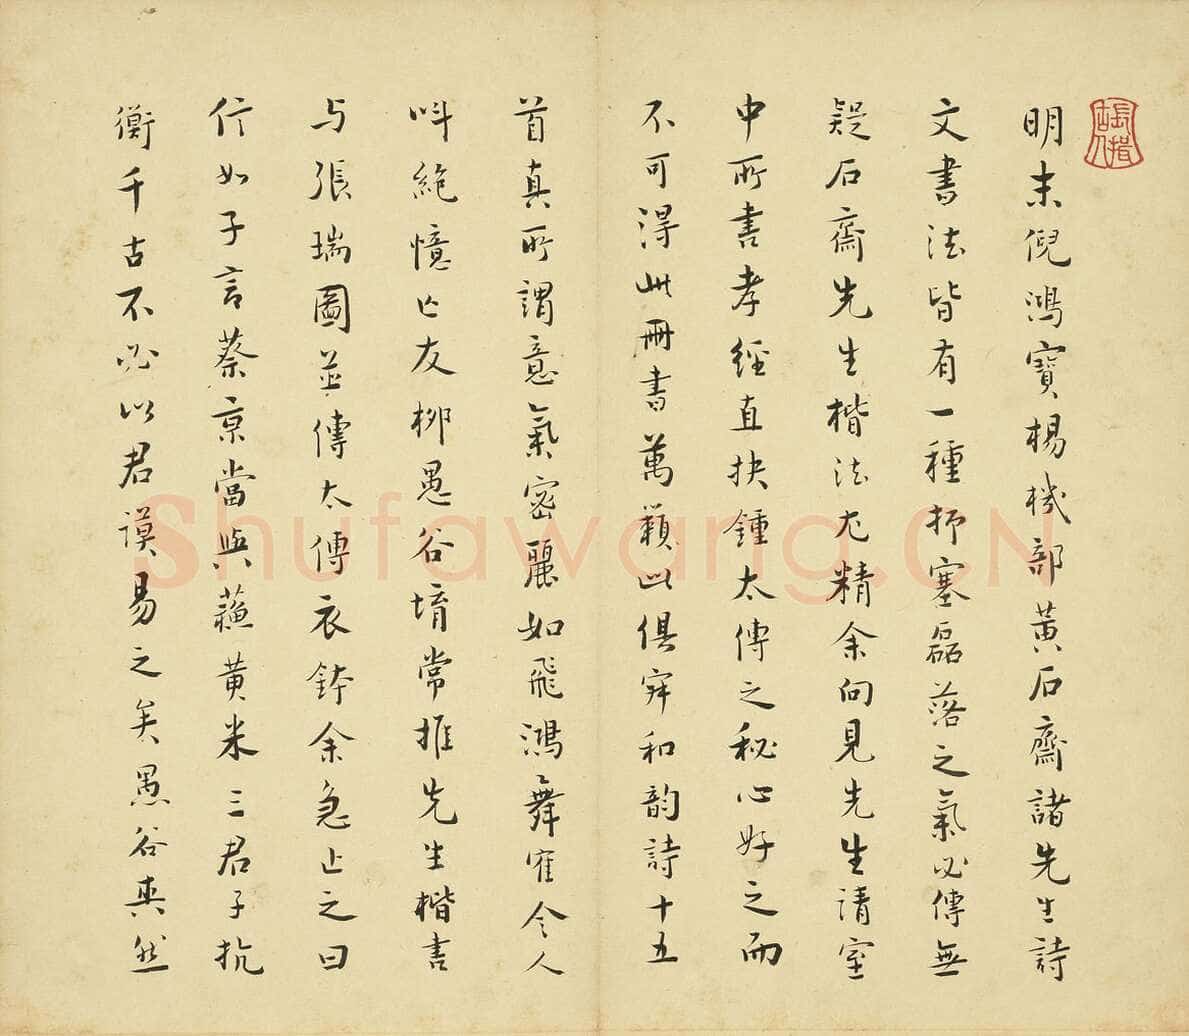 明末倪鴻寶楊機部黃石齋諸先生詩
文書法皆有一種抑塞磊落之氣必傳無
疑石齋先生楷法尤精余向見先生請室
中所書孝經直抉鍾太傅之秘心好之而
不可得此冊書萬籟此俱寂和韵詩十五
首真所謂意氣密麗如飛鴻舞隺令人
叫絕憶亡友柳愚谷堉常推先生楷書
与張瑞圖並傳太傅衣鉢余急止之曰
信如子言蔡京當與蘓黃米三君子抗
衡千古不必以君謨易之矣愚谷爽然
Shufawang.CN